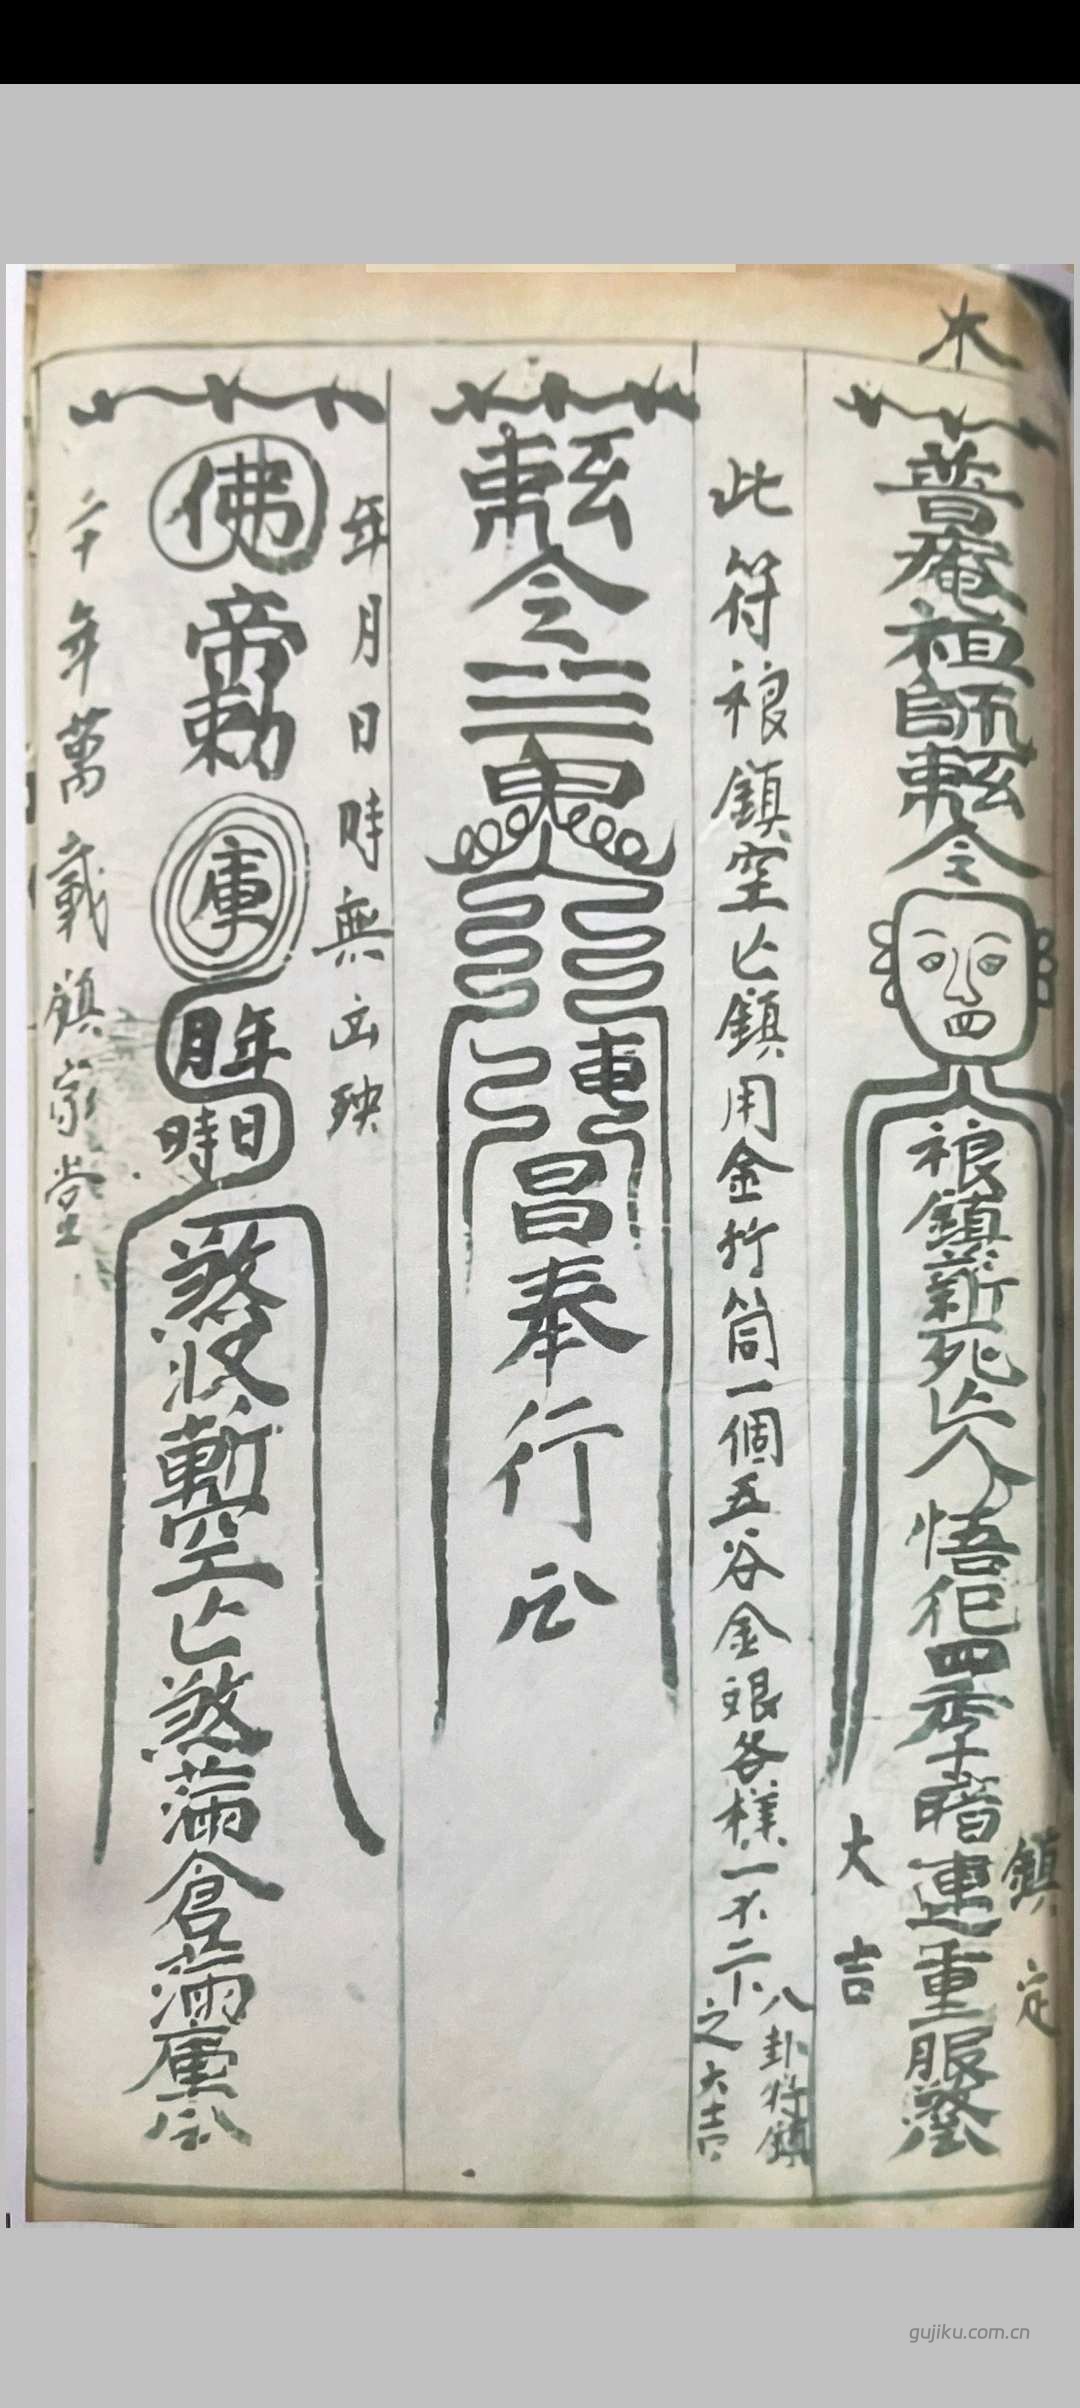 木
普庵祖師敕令
祖鎮新死亡人悟犯四季暗連重服煞
鎮定
大吉
此符根鎮空亡鎮用金竹筒一個五谷金艮各樣一不二卜
八卦符鎮
之大吉
敕令
昌奉行
年月日時無凶殃
佛帝勅庫
年月
日時
煞收暫空亡煞滿倉滿庫
千年萬載鎮家堂
gujiku.com.cn